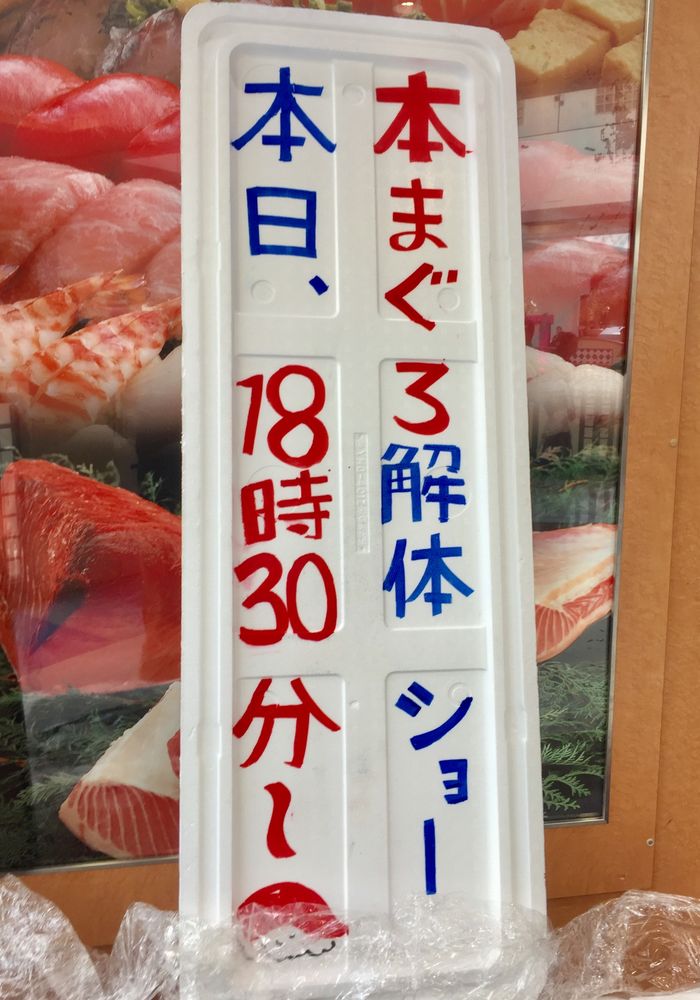 本まぐろ解体ショー
本日、18時30分〜